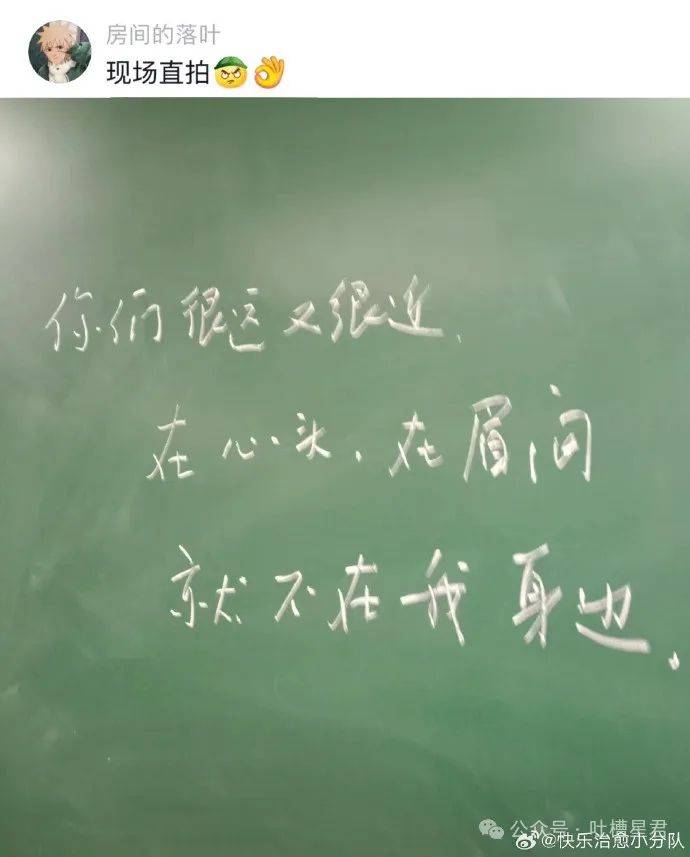 房间的落叶
现场直拍
你们很远又很近.
在心头.在眉间
就不在我身边.
公众号·吐槽星君
@快乐治愈小分队